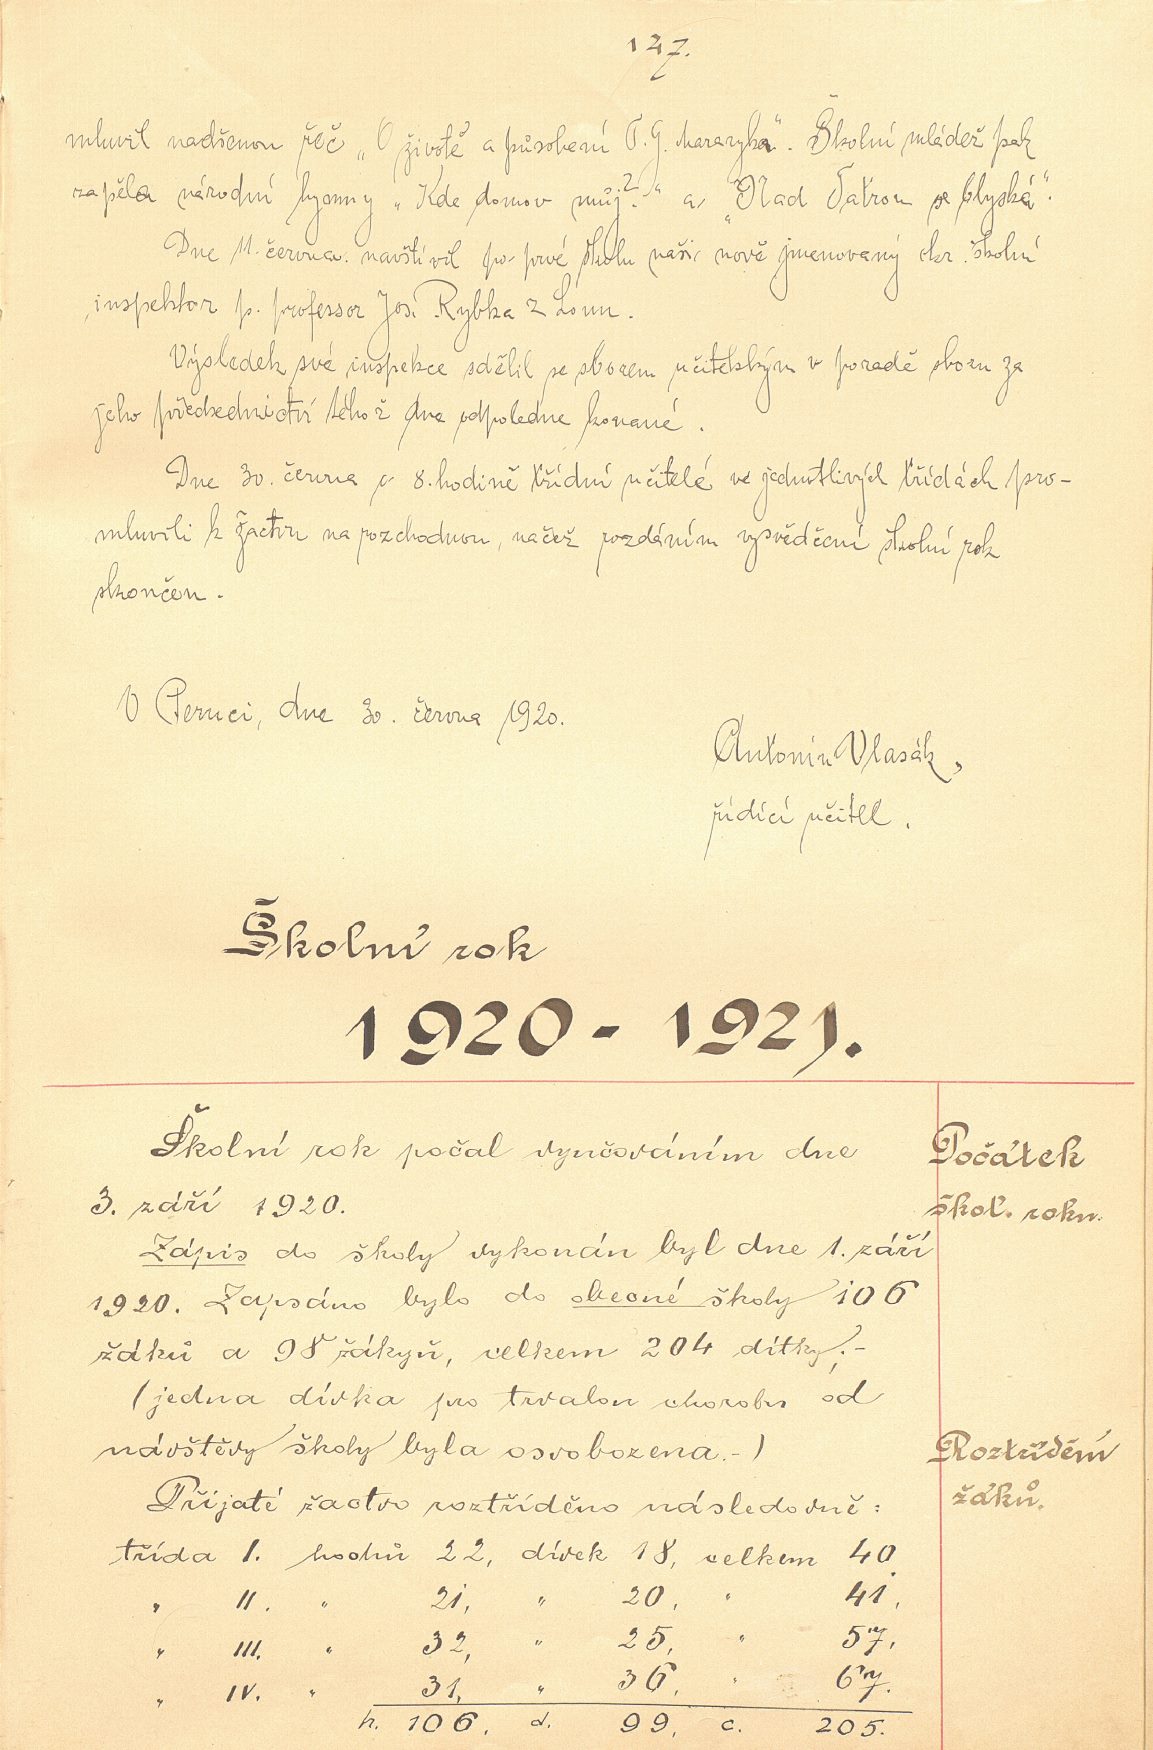 127.
mluvil nadšenou řeč „O životě a působení T. G. Masaryka". Školní mládež pak
zapěla národní hymny „Kde domov můj?" a „Nad Tatrou se blýská".
Dne 11. června navštívil po prvé školu naši nově jmenovaný okr. školní
inspektor p. professor Jos. Rybka z Loun.
Výsledek své inspekce sdělil se sborem učitelským v poradě sboru za
jeho předsednictví téhož dne odpoledne konané.
Dne 30. června o 8. hodině třídní učitelé ve jednotlivých třídách pro-
mluvili k žactvu na rozchodnou, načež rozdáním vysvědčení školní rok
skončen.
V Peruci, dne 30. června 1920.
Antonín Vlasák,
řídící učitel.
Školní rok
1920 - 1921.
Školní rok počal vyučováním dne
3. září 1920.
Počátek
škol. roku.
Zápis do školy vykonán byl dne 1. září
1920. Zapsáno bylo do obecné školy 106
žáků a 98 žákyň, celkem 204 dítky.-
(jedna dívka pro trvalou chorobu od
návštěvy školy byla osvobozena.-)
Roztřídění
žáků.
Přijaté žactvo roztříděno následovně:
třída I. hochů 22, dívek 18, celkem 40
„ II. „ 21, „ 20, „ 41,
„ III. „ 32, „ 25, „ 57,
„ IV. „ 31, „ 36, „ 67.
h. 106, d. 99, c. 205.